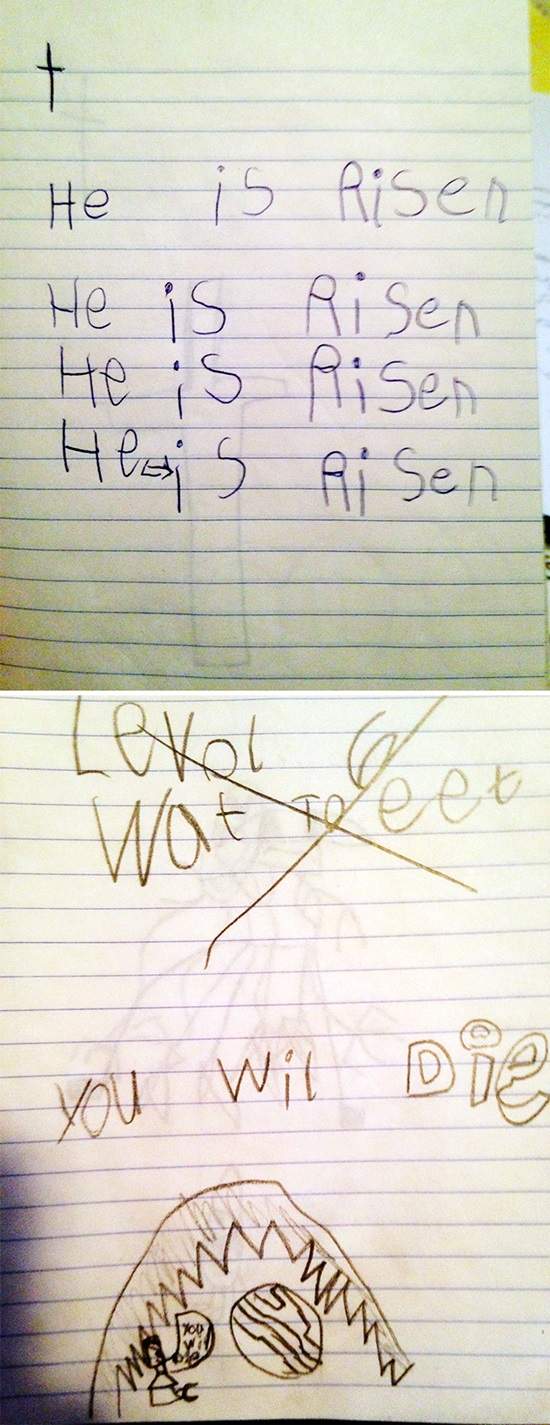 He is Risen
He is Risen
He is Risen
He is Risen
Levol 6
Wat To eet
You Wil Die
You
Wil
Die